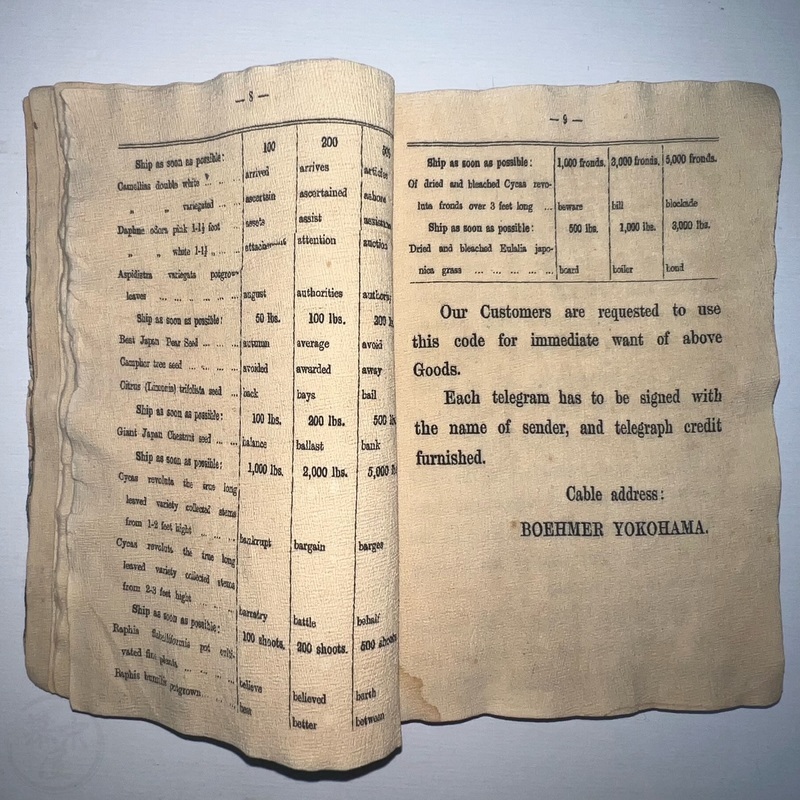 — 8 —
100 200
Ship as soon as possible:
Camellias double white „ ... arrived arrives
„ „ variegated ... ascertain ascertained
Daphne odora pink 1-1½ foot assets assist
„ „ white 1-1½ „ ... attention
Aspidistra variegata potgrown
leaves ... ... ... ... ... august authorities
Ship as soon as possible: 50 lbs. 100 lbs.
Best Japan Pear Seed ... ... autumn average avoid
Camphor tree seed ... ... ... avoided awarded away
Citrus (Limonis) trifoliata seed ... back bays bail
Ship as soon as possible: 100 lbs. 200 lbs. 500
Giant Japan Chestnut seed ... ... balance ballast bank
Ship as soon as possible: 1,000 lbs. 2,000 lbs. 5,000
Cycas revoluta the true long
leaved variety collected stems
from 1-2 feet hight ... ... ... bankrupt bargain barges
Cycas revoluta the true long
leaved variety collected stems
from 2-3 feet hight ... ... ... barratry battle behalf
Ship as soon as possible: 100 shoots. 200 shoots. 500 shoots
Raphis flabelliformis pot culti-
vated fine plants ... ... ... ... believe believed berth
Raphis humilis potgrown ... ... best better between
— 9 —
Ship as soon as possible: 1,000 fronds. 3,000 fronds. 5,000 fronds.
Of dried and bleached Cycas revo-
luta fronds over 3 feet long ... beware bill blockade
Ship as soon as possible: 500 lbs. 1,000 lbs. 3,000 lbs.
Dried and bleached Eulalia japo-
nica grass ... ... ... ... ... ... board boiler bond
Our Customers are requested to use
this code for immediate want of above
Goods.
Each telegram has to be signed with
the name of sender, and telegraph credit
furnished.
Cable address:
BOEHMER YOKOHAMA.